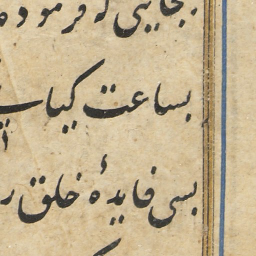 بجایی که فرموده
بساعت کیاب
بسی فایدهٔ خلق ر